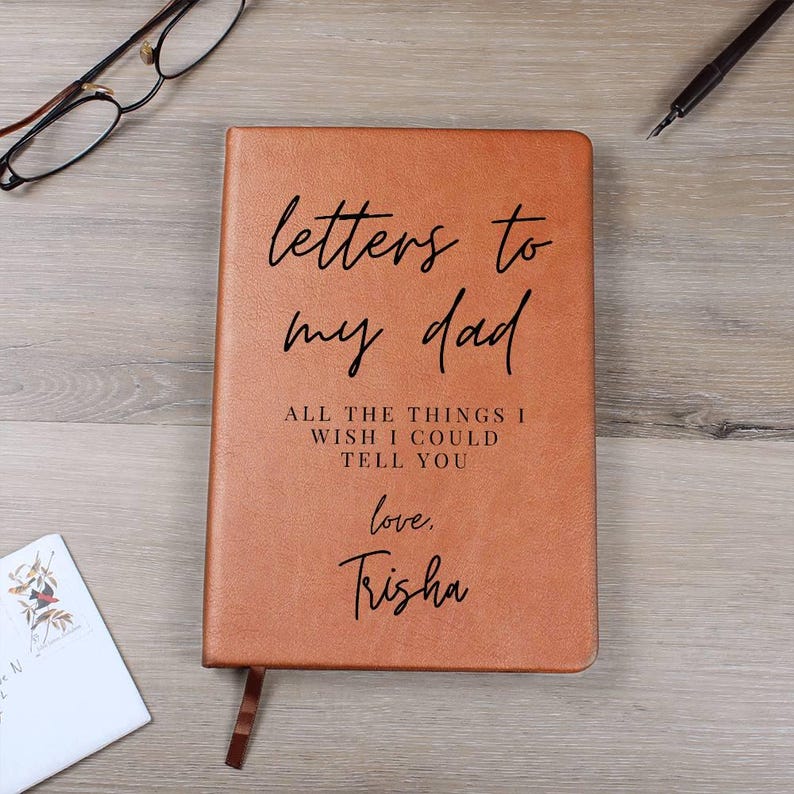 letters to
my dad
ALL THE THINGS I
WISH I COULD
TELL YOU
love,
Trisha